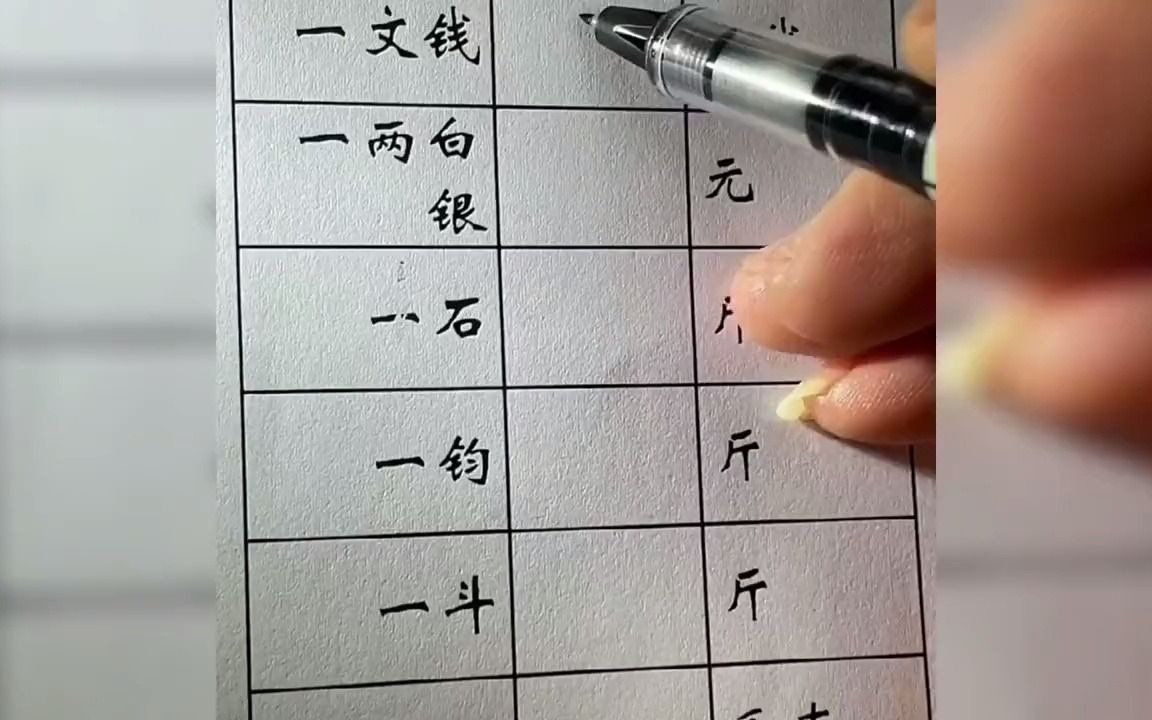 一文钱
一两白
银
元
一石
一钧
斤
一斗
斤